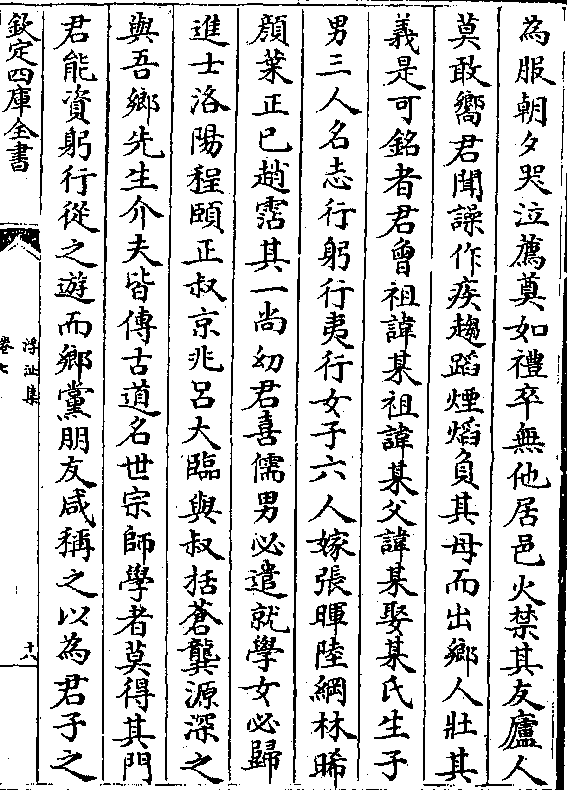 為服朝夕哭泣薦奠如禮卒無他居邑火禁其友廬人
莫敢嚮君聞譟作疾趨蹈煙熖負其母而出鄉人壯其
義是可銘者君曾祖諱某祖諱某父諱某娶某氏生子
男三人名志行躬行夷行女子六人嫁張暉陸綱林晞
顔葉正已趙霑其一尚幼君喜儒男必遣就學女必歸
進士洛陽程頤正叔京兆吕大臨與叔括蒼龔源深之
與吾鄉先生介夫皆傳古道名世宗師學者莫得其門
君能資躬行從之遊而鄉黨朋友咸稱之以為君子之
欽定四庫全書
浮沚集
卷七
十八